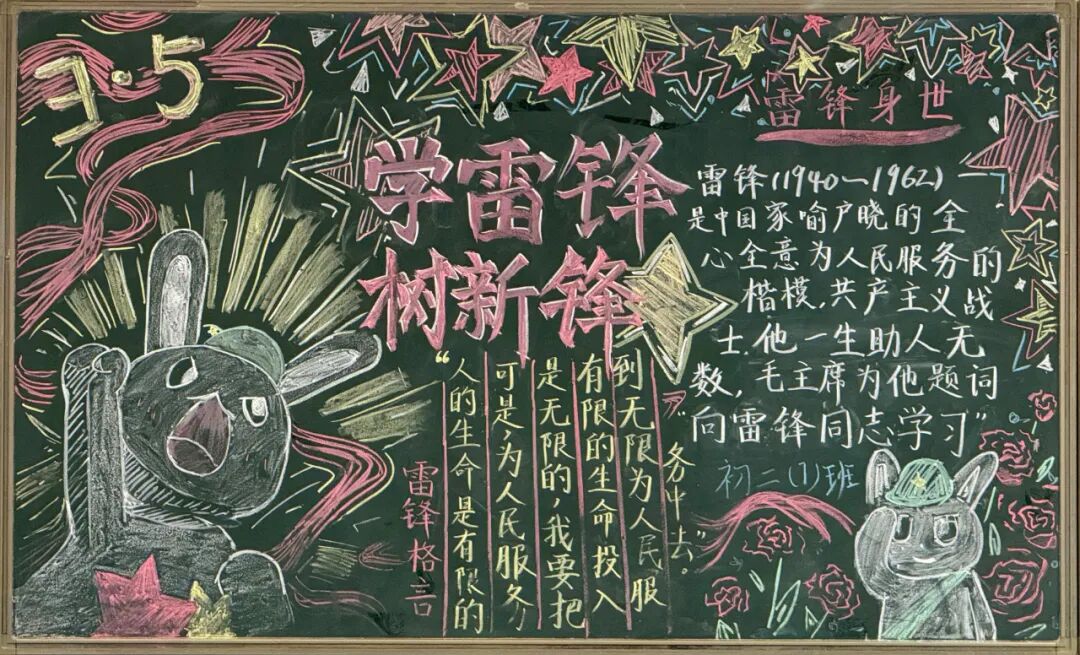 3·5
学雷锋
树新锋
雷锋格言
“人的生命是有限的
可是,为人民服务
是无限的,我要把
有限的生命投入
到无限为人民服
务中去。”
雷锋身世
雷锋(1940—1962)
是中国家喻户晓的全
心全意为人民服务的
楷模,共产主义战
士.他一生助人无
数,毛主席为他题词
“向雷锋同志学习”
初二(1)班